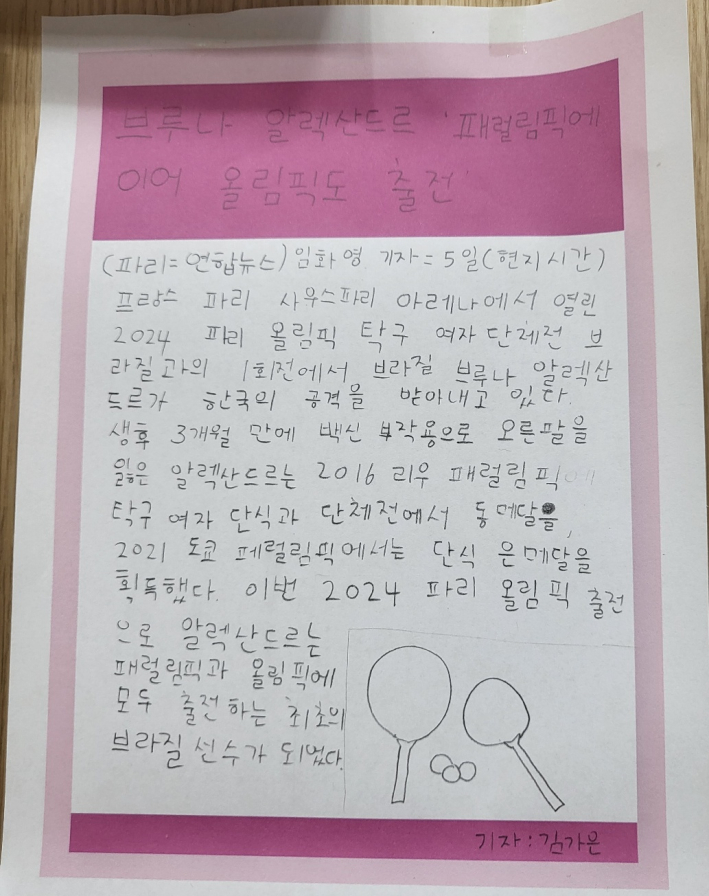 브루나 알렉산드르 '패럴림픽에
이어 올림픽도 출전'
(파리=연합뉴스) 임화영 기자= 5일(현지시간)
프랑스 파리 사우스파리 아레나에서 열린
2024 파리 올림픽 탁구 여자단체전 브
라질과의 1회전에서 브라질 브루나 알렉산
드르가 한국의 공격을 받아내고 있다.
생후 3개월 만에 백신 부작용으로 오른팔을
잃은 알렉산드르는 2016 리우 패럴림픽에
탁구 여자 단식과 단체전에서 동메달을,
2021 도쿄 페럴림픽에서는 단식 은메달을
획득했다. 이번 2024 파리 올림픽 출전
으로 알렉산드르는
패럴림픽과 올림픽에
모두 출전하는 최초의
브라질 선수가 되었다.
기자:김가은